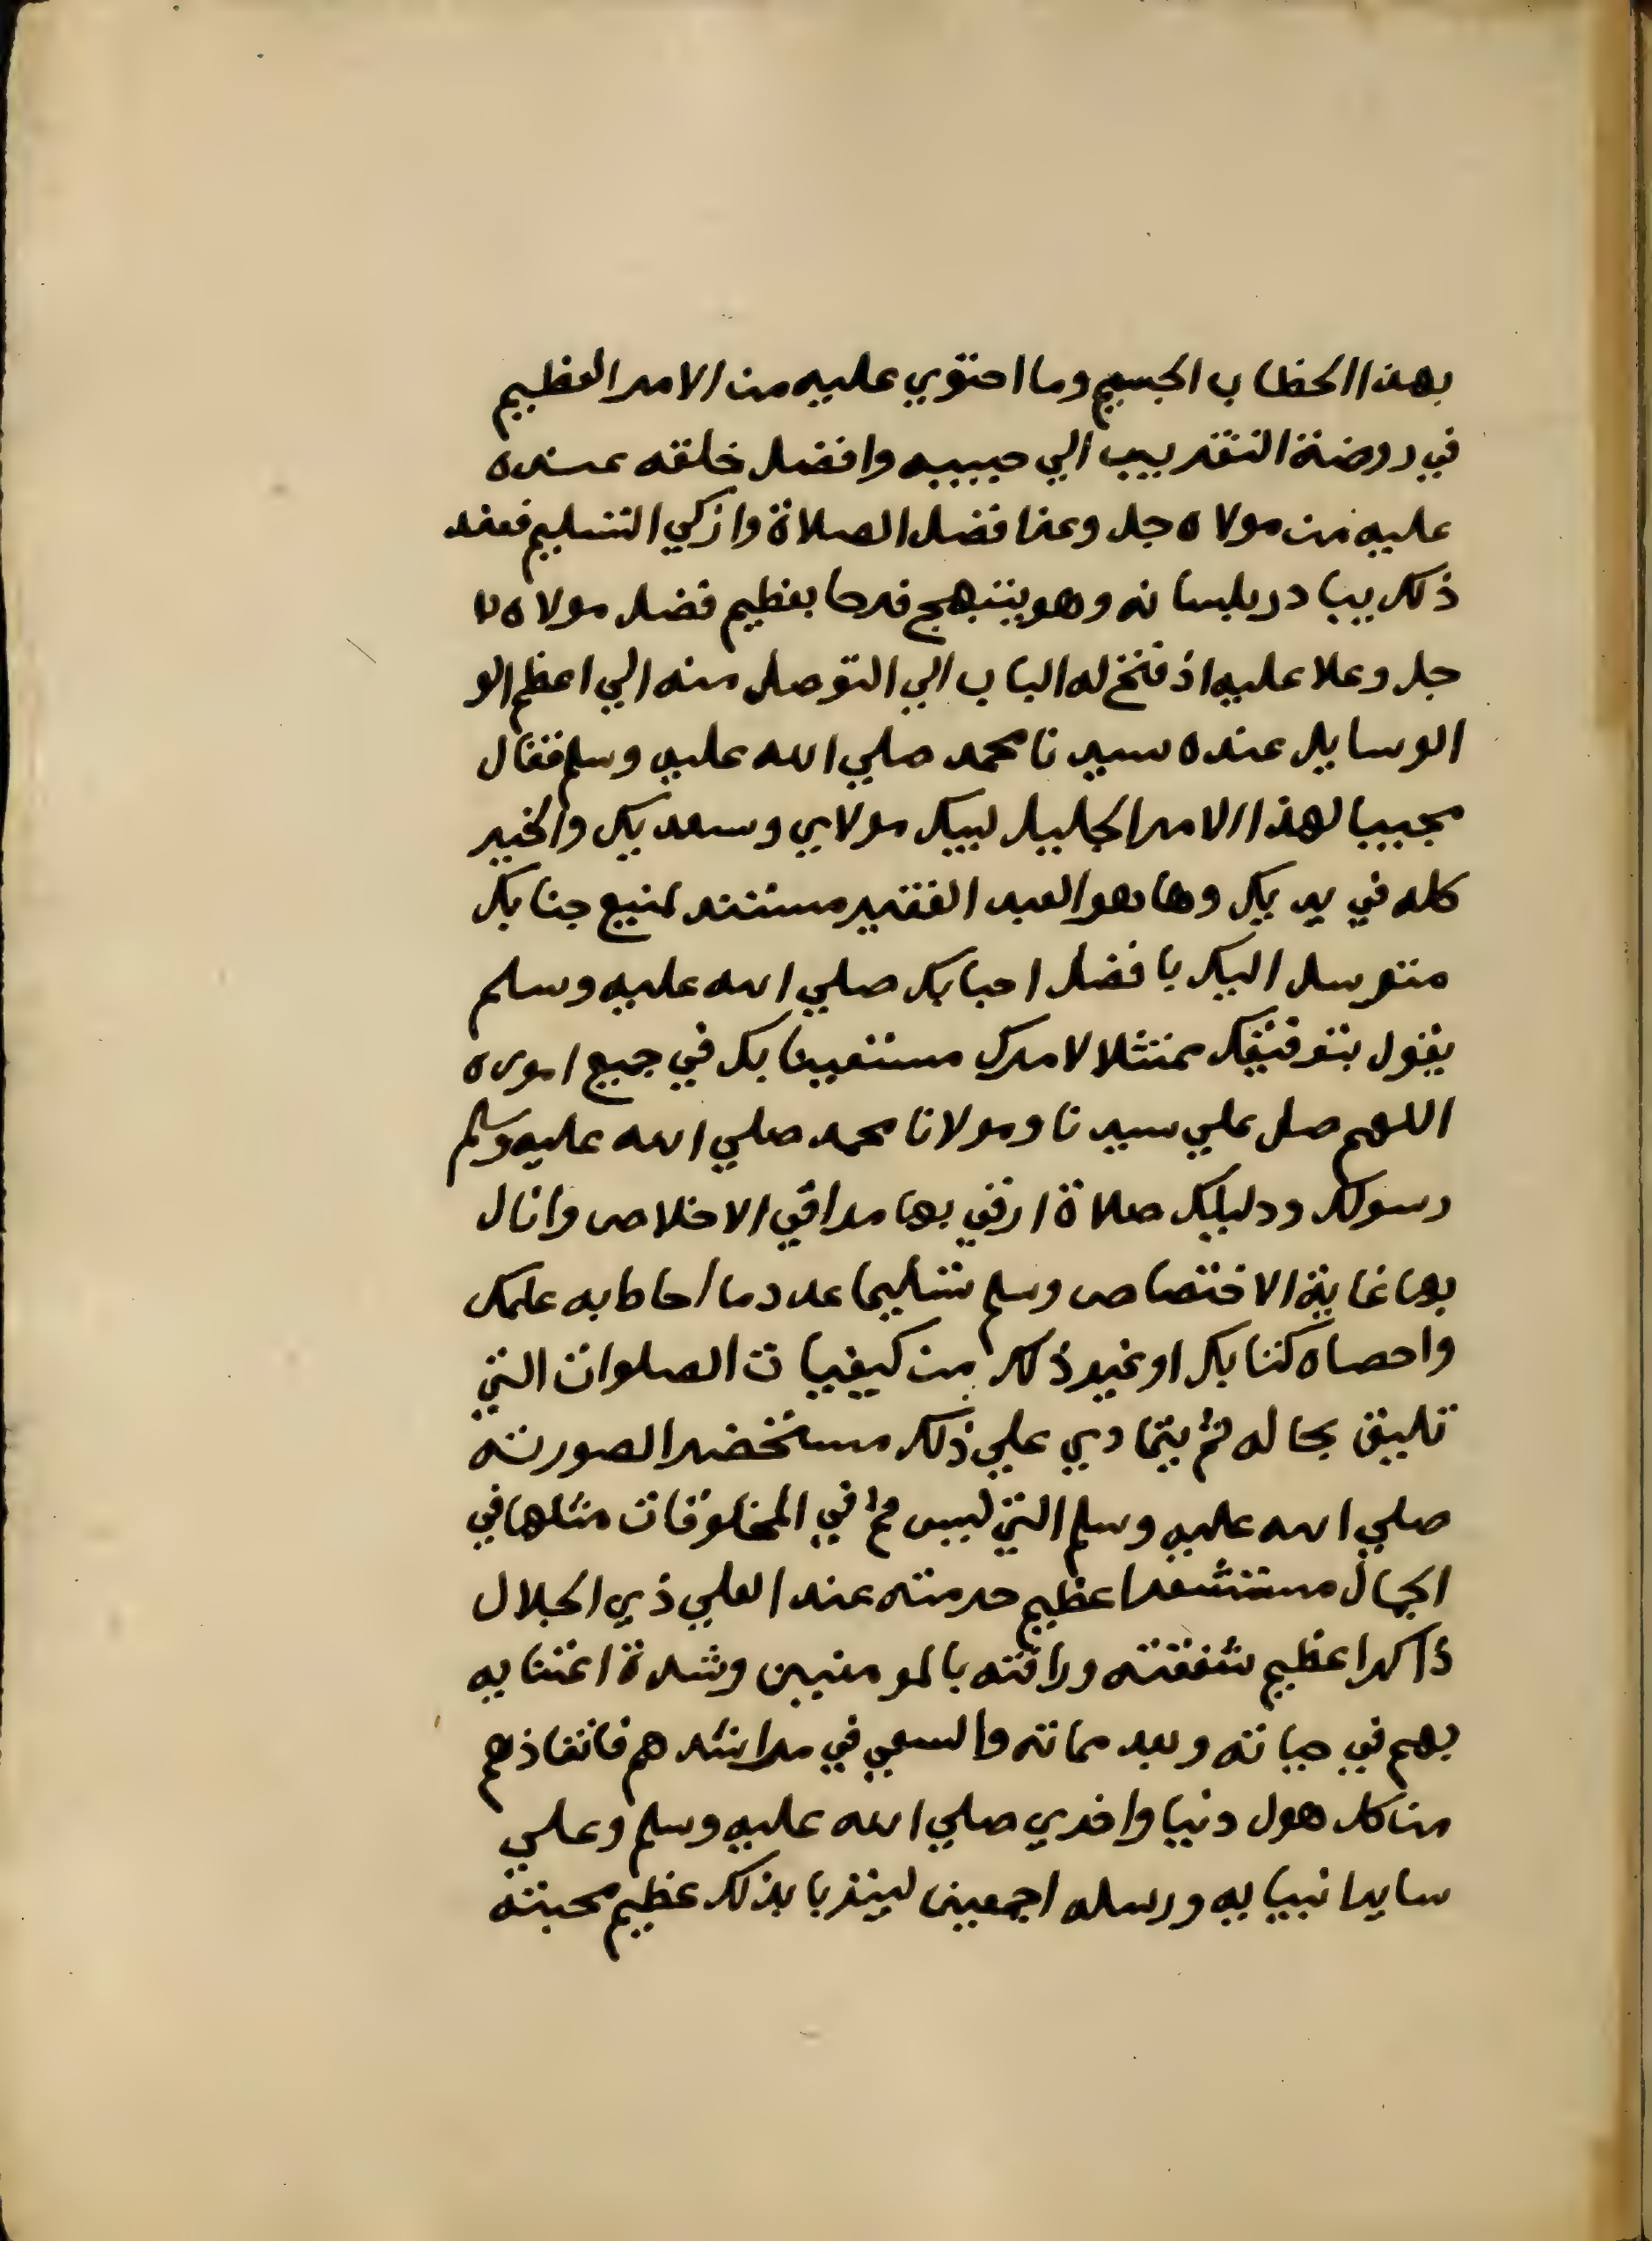 بهذا الخطاب الجسيم وما احتوي عليه من الامر العظيم
في روضة التقريب الي حبيبه وافضل خلقه عنده
عليه من مولاه جل وعز افضل الصلاة وازكي التسليم فعند
ذلك يبادر بلسانه وهو يبتهج فرحا بعظيم فضل مولاه
جل وعلا عليه اذ فتح له الباب الي التوصل منه الي اعظم الو
الوسايل عنده سيدنا محمد صلي الله عليه وسلم فقال
مجيبا لهذا الامر الجليل لبيك مولاي وسعديك والخير
كله في يديك وها هو العبد الفقير مستند لمنيع جنابك
متوسل اليك بافضل احبابك صلي الله عليه وسلم
يقول بتوفيقك ممتثلا لامرك مستعينا بك في جميع اموره
اللهم صل علي سيدنا ومولانا محمد صلي الله عليه وسلم
رسولك ودليلك صلاة ارقي بها مراقي الاخلاص وانال
بها غاية الاختصاص وسلم تسليما عدد ما احاط به علمك
واحصاه كتابك او غير ذلك من كيفيات الصلوات التي
تليق بحاله ثم يتمادي علي ذلك مستحضرا لصورته
صلي الله عليه وسلم التي ليس ثم في المخلوقات مثلها في
الجمال مستشعرا عظيم حرمته عند العلي ذي الجلال
ذاكرا عظيم شفقته ورافته بالمومنين وشدة اعتنايه
بهم في حياته وبعد مماته والسعي في مراشدهم فانقاذهم
من كل هول دنيا واخري صلي الله عليه وسلم وعلي
ساير انبيايه ورسله اجمعين ليتربا بذلك عظيم محبته